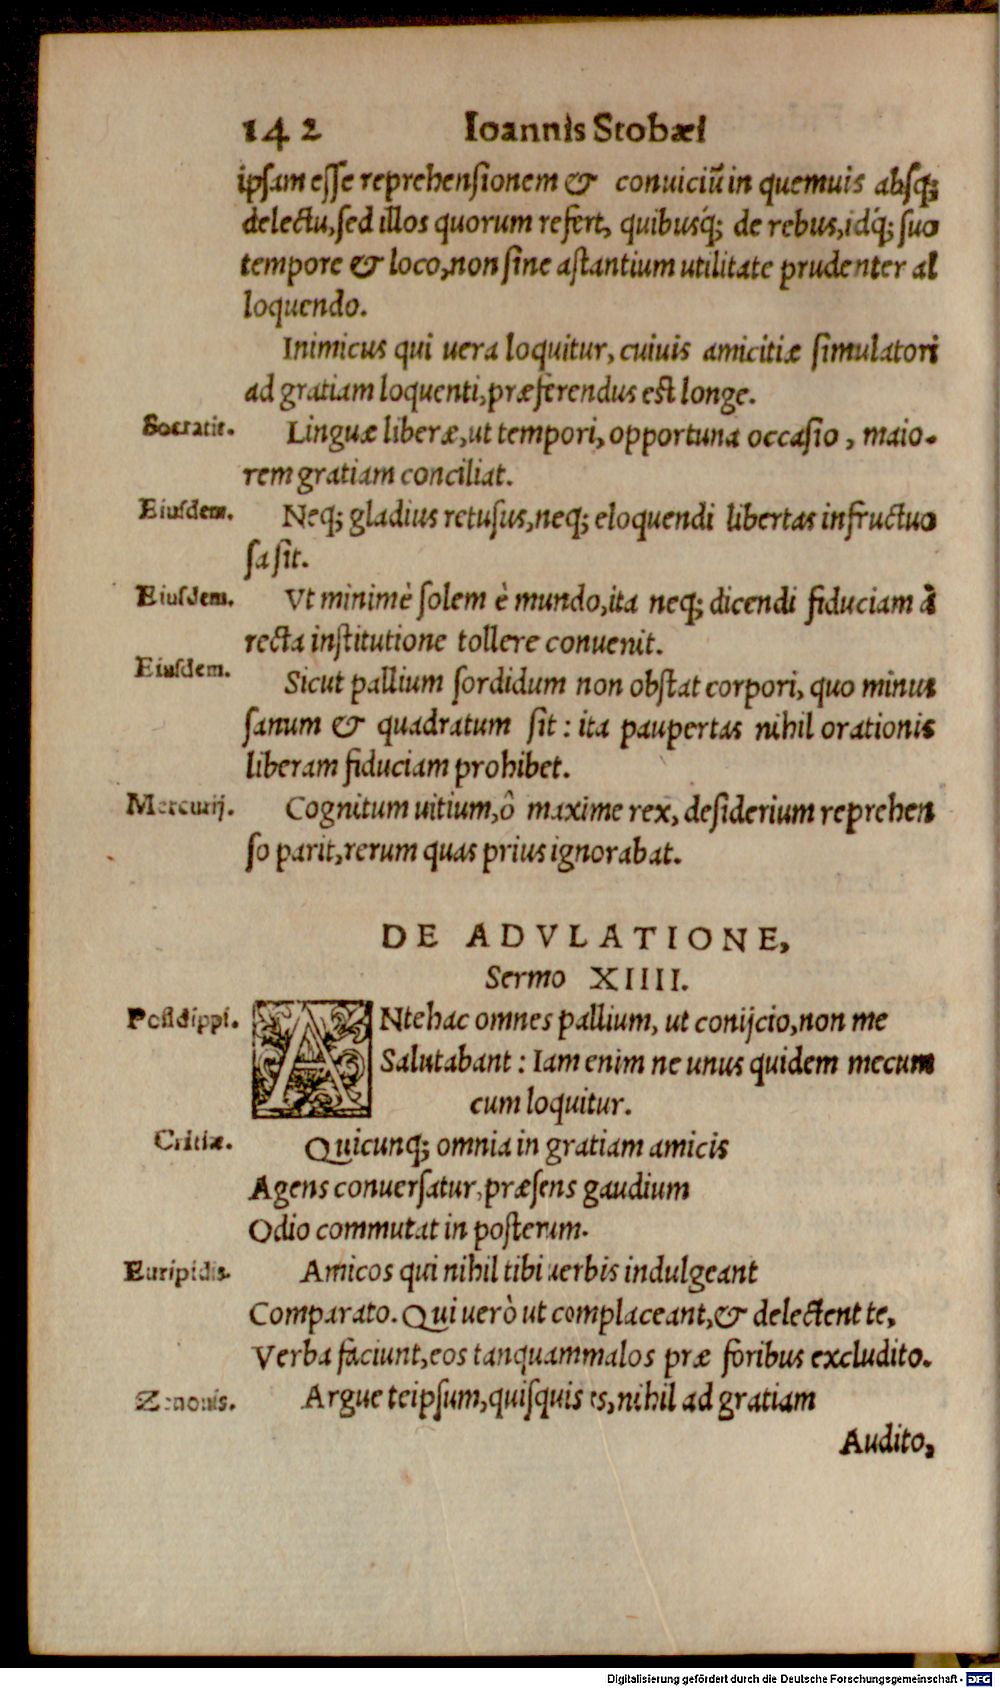 142 Ioannis Stobæi
ipsam esse reprehensionem & conuiciũ in quemuis absq;
delectu, sed illos quorum refert, quibusq́; de rebus, idq́; suo
tempore & loco, non sine astantium utilitate prudenter al
loquendo.
Inimicus qui uera loquitur, cuiuis amicitiæ simulatori
ad gratiam loquenti, præferendus est longe.
Socratis. Linguæ liberæ, ut tempori, opportuna occasio, maio-
rem gratiam conciliat.
Eiusdem. Neq; gladius retusus, neq; eloquendi libertas infructuo
sa sit.
Eiusdem. Vt minimè solem è mundo, ita neq; dicendi fiduciam à
recta institutione tollere conuenit.
Eiusdem. Sicut pallium sordidum non obstat corpori, quo minus
sanum & quadratum sit: ita paupertas nihil orationis
liberam fiduciam prohibet.
Mercurij. Cognitum uitium, ô maxime rex, desiderium reprehen
so parit, rerum quas prius ignorabat.
DE ADVLATIONE,
Sermo XIIII.
Posidippi. ANtehac omnes pallium, ut conijcio, non me
Salutabant: Iam enim ne unus quidem mecum
cum loquitur.
Critiæ. Quicunq; omnia in gratiam amicis
Agens conuersatur, præsens gaudium
Odio commutat in posterum.
Euripidis. Amicos qui nihil tibi uerbis indulgeant
Comparato. Qui uerò ut complaceant, & delectent te,
Verba faciunt, eos tanquam malos præ foribus excludito.
Zenonis. Argue teipsum, quisquis es, nihil ad gratiam
Audito,
Digitalisierung gefördert durch die Deutsche Forschungsgemeinschaft - DFG